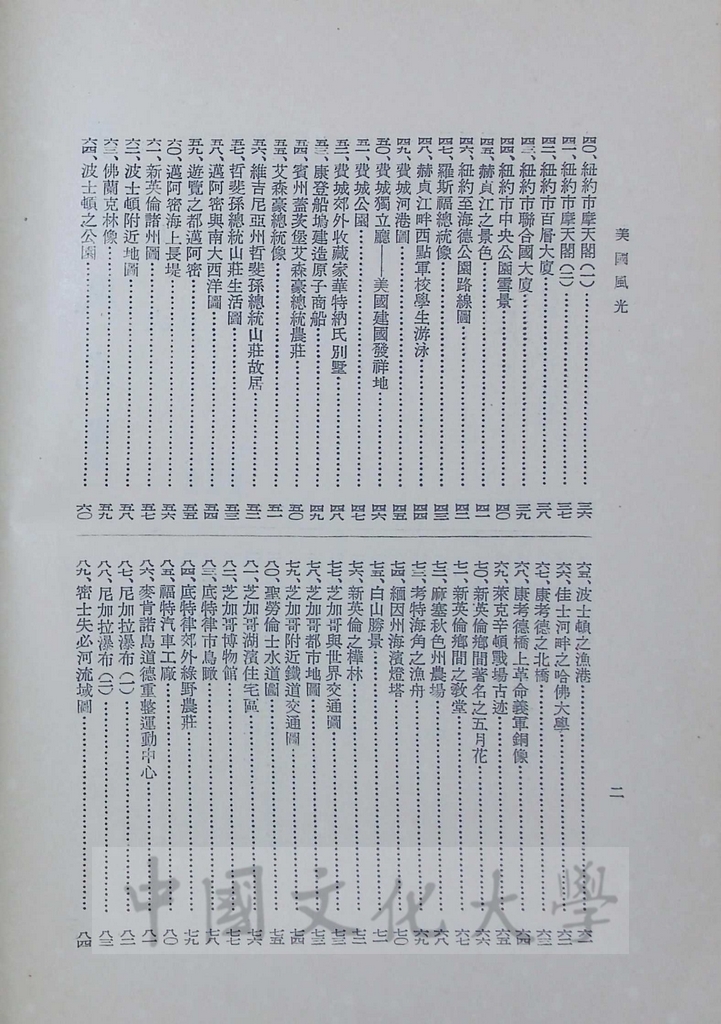 美國風光
四〇、紐約市摩天閣(一)……三六
四一、紐約市摩天閣(二)……三七
四二、紐約市百層大廈……三八
四三、紐約市聯合國大廈……三九
四四、紐約市中央公園雪景……四〇
四五、赫貞江之景色……四一
四六、紐約至海德公園路線圖……四二
四七、羅斯福總統像……四三
四八、赫貞江畔西點軍校學生游泳……四四
四九、費城河港圖……四五
五〇、費城獨立廳——美國建國發祥地……四六
五一、費城公園……四七
五二、費城郊外收藏家華特納氏別墅……四八
五三、康登船塢建造原子商船……四九
五四、賓州蓋茨堡艾森豪總統農莊……五〇
五五、艾森豪總統像……五一
五六、維吉尼亞州哲斐孫總統山莊故居……五二
五七、哲斐孫總統山莊生活圖……五三
五八、邁阿密與南大西洋圖……五四
五九、遊覽之都邁阿密……五五
六〇、邁阿密海上長堤……五六
六一、新英倫諸州圖……五七
六二、波士頓附近地圖……五八
六三、佛蘭克林像……五九
六四、波士頓之公園……六〇
六五、波士頓之漁港……六一
六六、佳士河畔之哈佛大學……六二
六七、康考德之北橋……六三
六八、康考德橋上革命義軍銅像……六四
六九、萊克辛頓戰場古迹……六五
七〇、新英倫鄉間著名之五月花……六六
七一、新英倫鄉間之教堂……六七
七二、麻塞秋色州農場……六八
七三、考特海角之漁舟……六九
七四、緬因州海濱燈塔……七〇
七五、白山勝景……七一
七六、新英倫之樺林……七二
七七、芝加哥與世界交通圖……七三
七八、芝加哥都市地圖……七三
七九、芝加哥附近鐵道交通圖……七四
八〇、聖勞倫士水道圖……七五
八一、芝加哥湖濱住宅區……七六
八二、芝加哥博物館……七七
八三、底特律市鳥瞰……七八
八四、底特律郊外綠野農莊……七九
八五、福特汽車工廠……八〇
八六、麥肯諾島道德重整運動中心……八一
八七、尼加拉瀑布(一)……八二
八八、尼加拉瀑布(二)……八三
八九、密士失必河流域圖……八四
二
中國文化大學